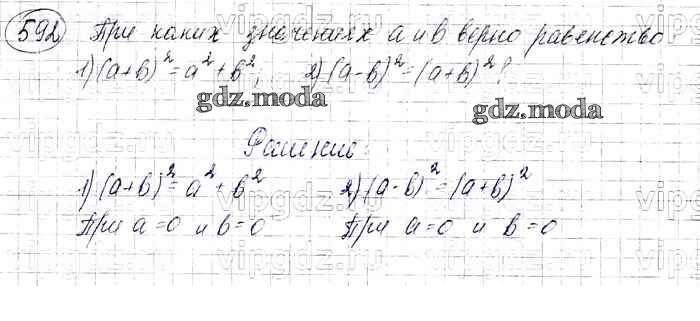 592 При каких значениях а и в верно равенство
1) (а+в)²=а²+в²; 2) (а-в)²=(а+в)²?
gdz.moda gdz.moda
Решение:
1) (а+в)²=а²+в² 2) (а-в)²=(а+в)²
При а=0 и в=0 При а=0 и в=0
vipgdz.ru